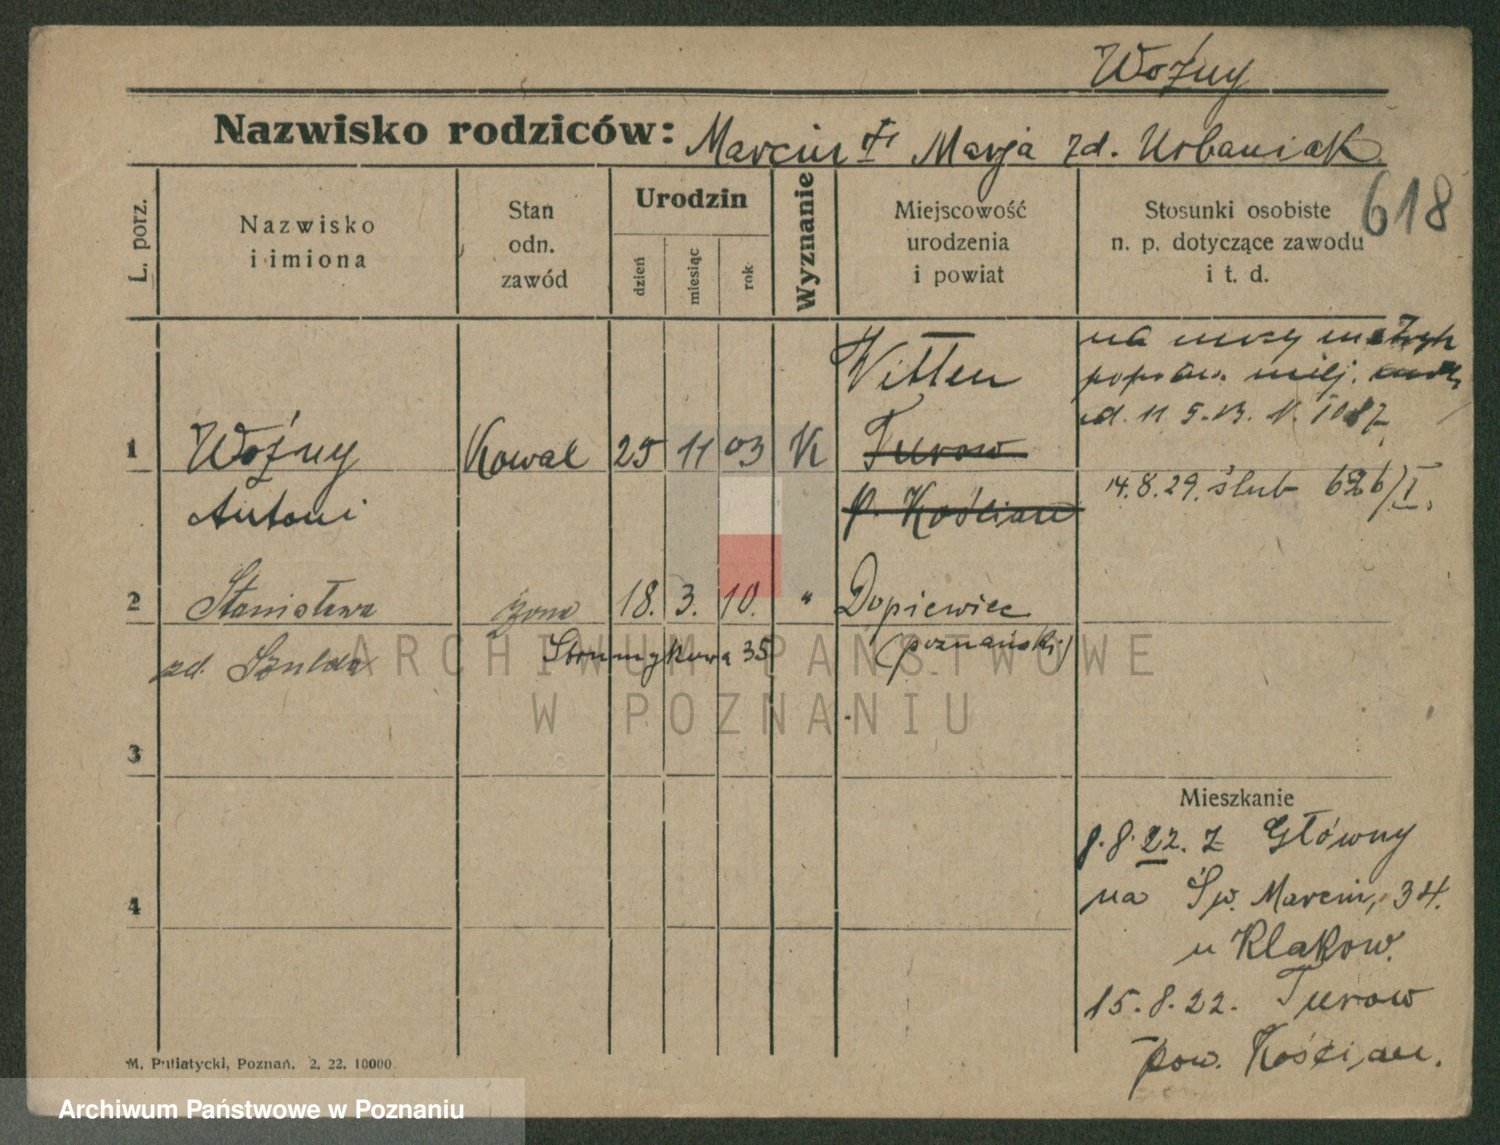 Woźny
Nazwisko rodziców: Marcin Marja zd. Urbaniak
618
L. porz.
Nazwisko
i imiona
Stan
odn.
zawód
Urodzin
dzień
miesiąc
rok
Wyznanie
Miejscowość
urodzenia
i powiat
Stosunki osobiste
n. p. dotyczące zawodu
i t. d.
1
Woźny
Antoni
Kowal
25 11 03
K
Witten
Turow
p. Kościan
na mocy
popraw.
d. 11.5.
14.8.29. ślub 626/I.
2
Stanisława
zd. Szulda
żona
18. 3. 10.
"
Dopiewiec
(poznański)
Strumykowa 35
ARCHIWUM PAŃSTWOWE
W POZNANIU
3
4
Mieszkanie
8.8.22. z Główny
na Św. Marcin, 34.
u Klakow.
15.8.22. Turow
pow. Kościan.
M. Putiatycki, Poznań. 2. 22. 10000
Archiwum Państwowe w Poznaniu